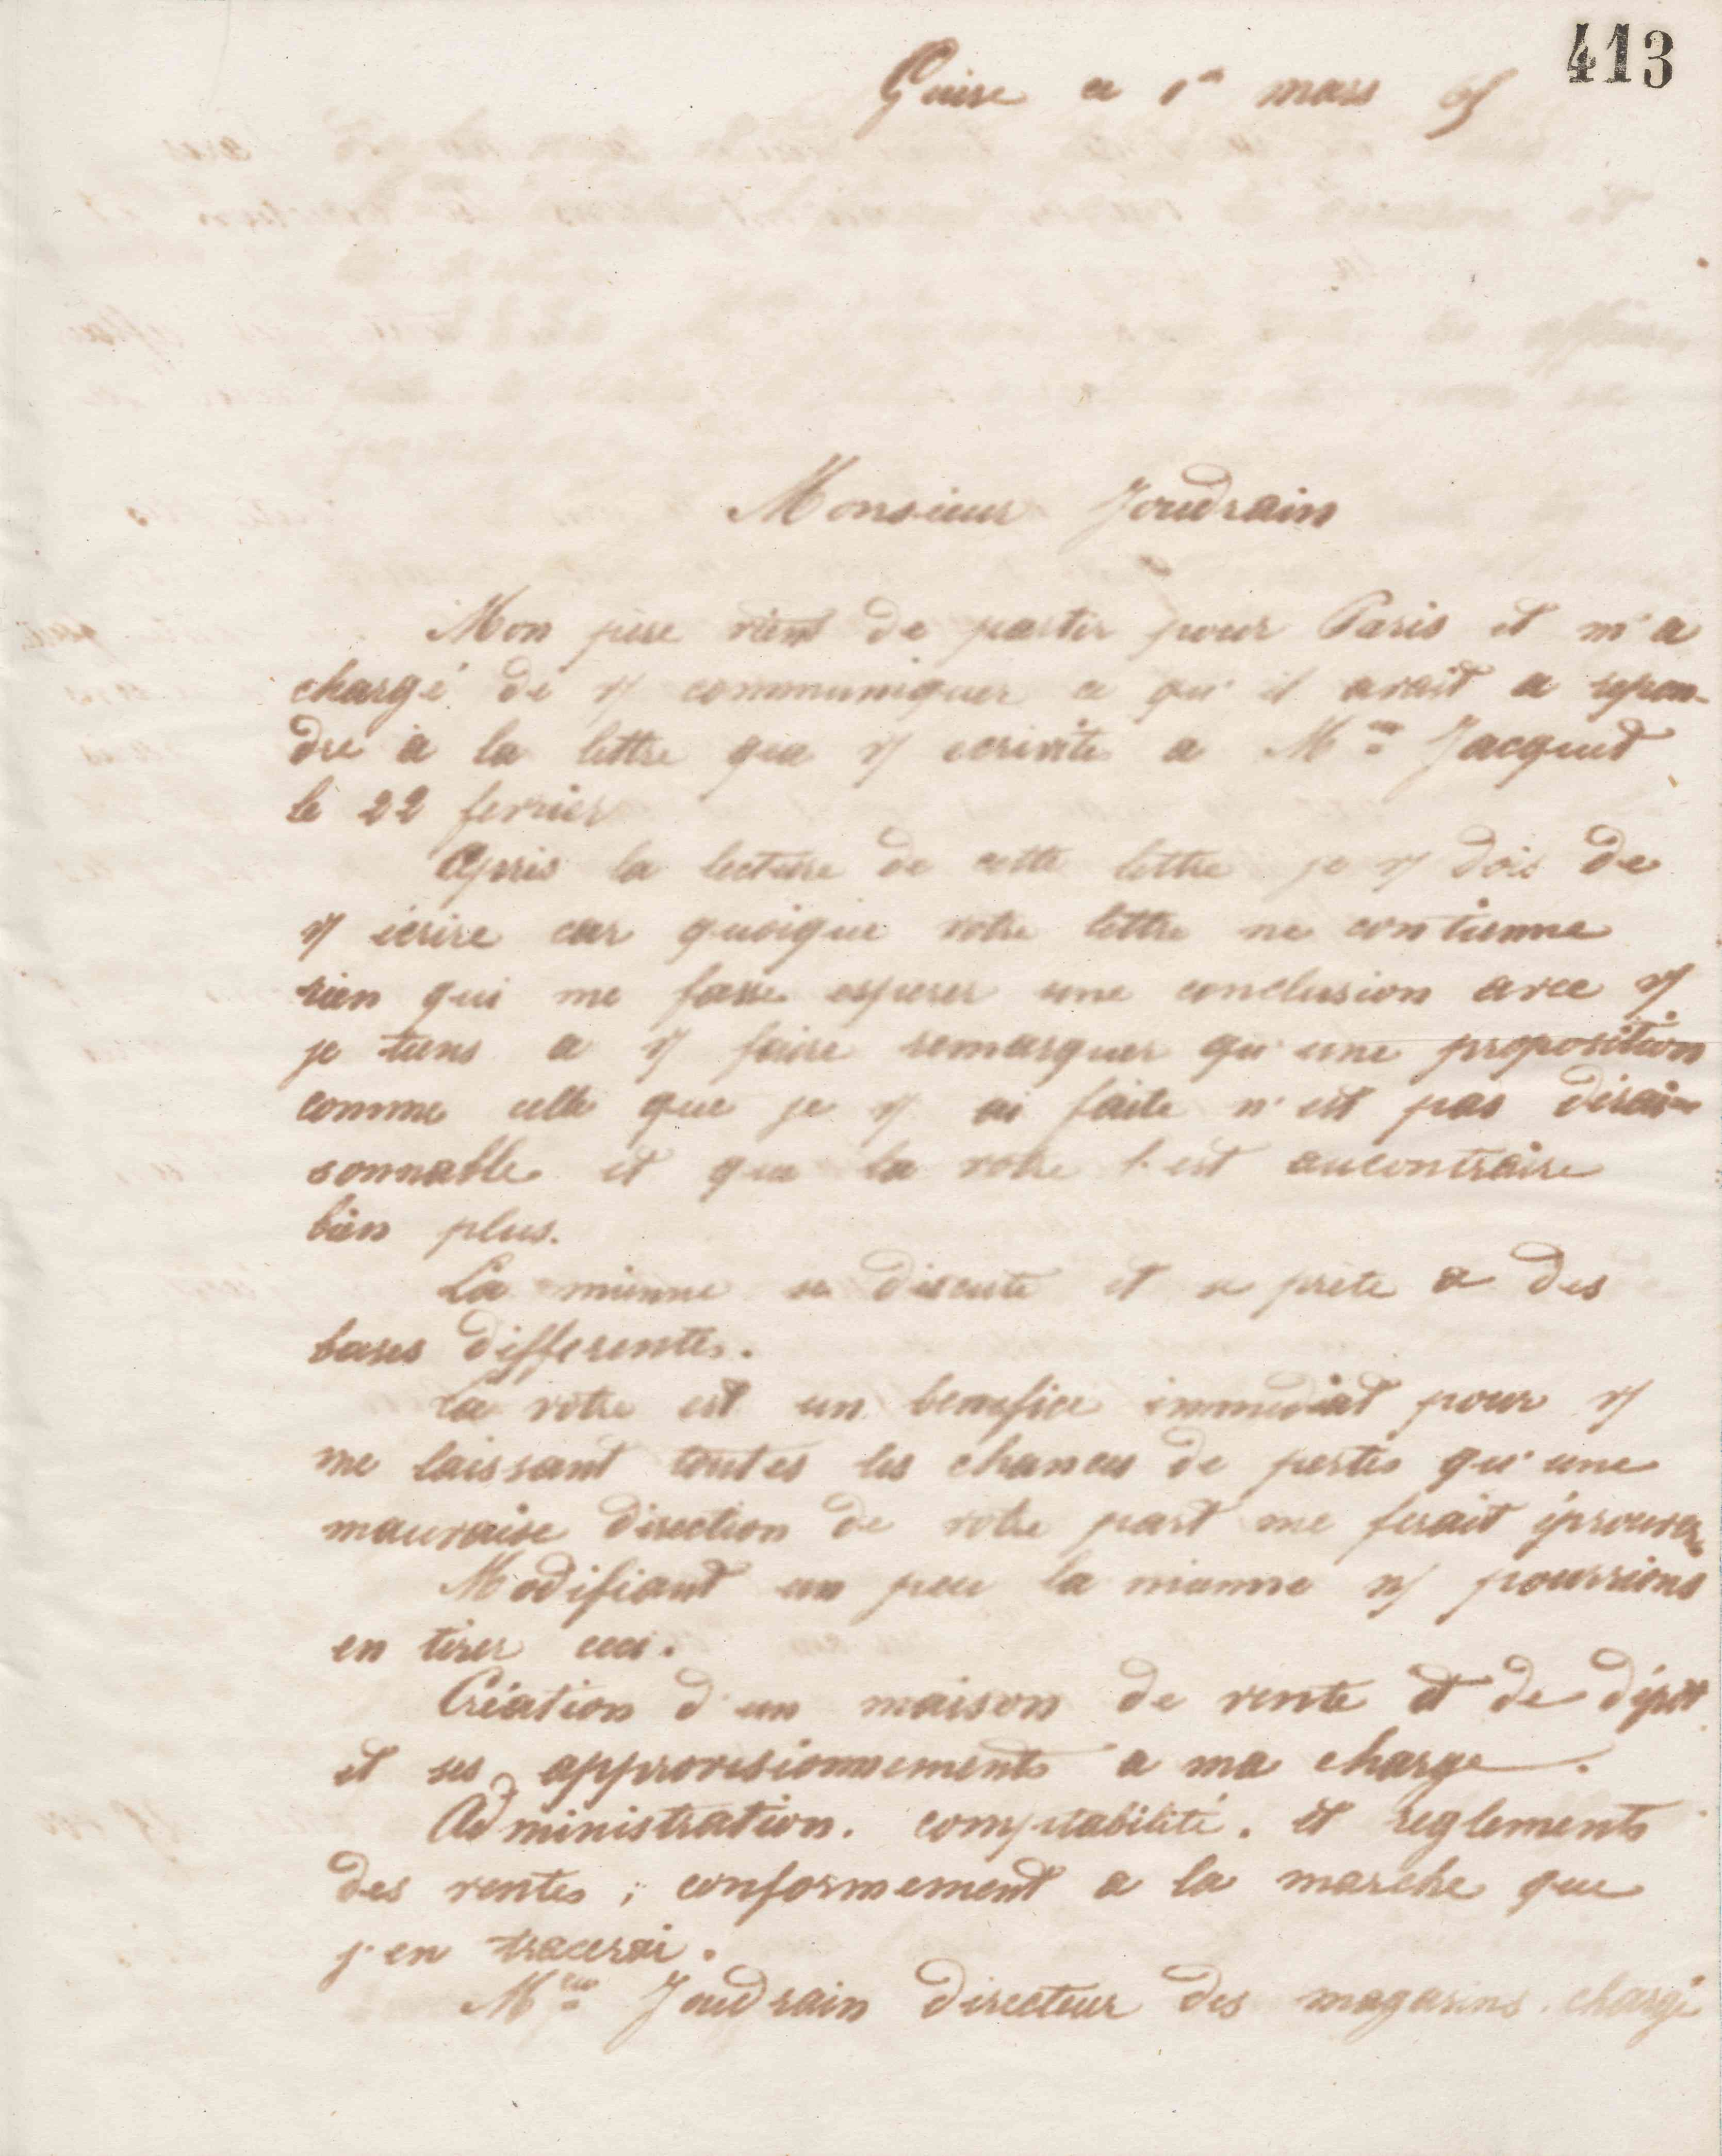 413
Guise ce 1er mars 65
Monsieur Joudrain
Mon père vient de partir pour Paris et m'a
chargé de vs communiquer ce qu'il avait a repon-
dre à la lettre que vs ecrivite a Mr Jacquet
le 22 fevrier
Apris la lecture de cette lettre je vs dois de
vs écrire car quoique votre lettre ne contienne
rien qui me fasse esperer une conclusion avec vs
je tiens a vs faire remarquer qu'une proposition
comme celle que je vs ai faite n'est pas dérai=
sonnable et que la votre l'est aucontraire
bien plus.
La mienne se discute et se prète a des
bases differentes.
La votre est un benefice immediat pour vs
me laissant toutes les chances de pertes qu'une
mauvaise direction de votre part me ferait éprouver
Modifiant un peu la mienne ns pourrions
en tirer ceci.
Création d'un maison de vente et de dépot
et ses approvisionnements a ma charge.
Administration. comptabilité. et reglements
des ventes; conformement a la marche que
j'en tracerai.
Mr Joudrain directeur des magasins. chargé